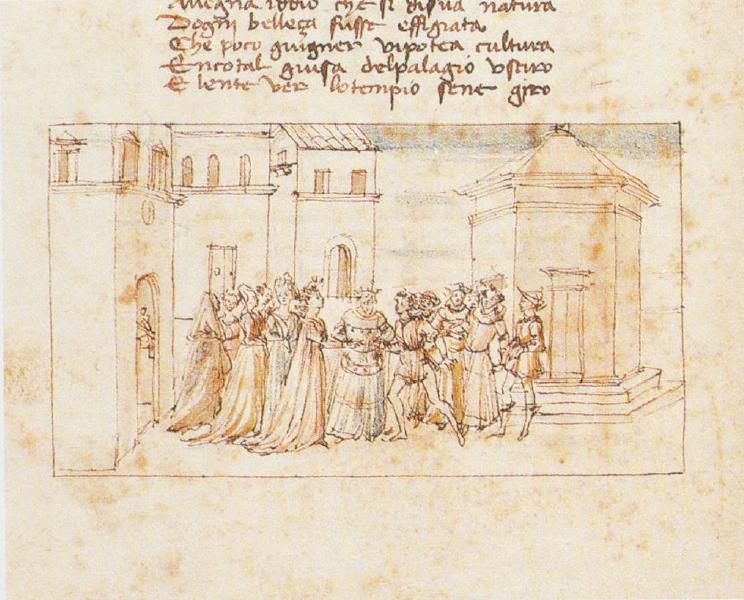 Avegna iddio che si di sua natura
Dogni belleça fusse effigiata
Che poco guigner vi potea cultura
En cotal guisa del palagio usciro
E lente ver lo tempio sene giro